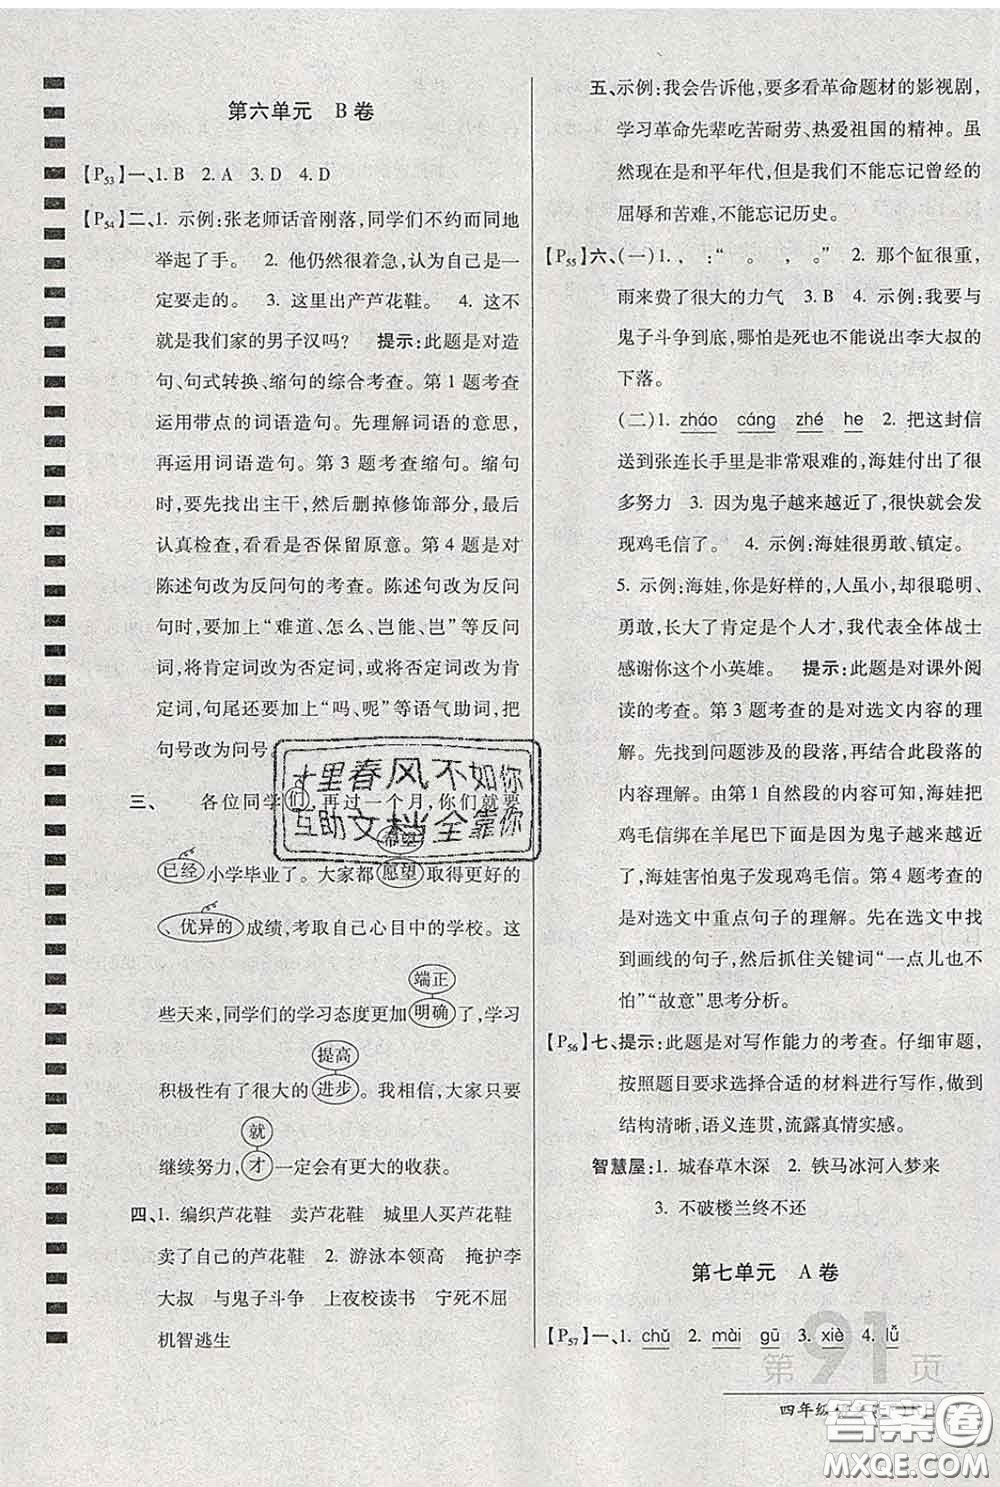 第六单元 B卷
【P53】一、1. B 2. A 3. D 4. D
【P54】二、1. 示例:张老师话音刚落,同学们不约而同地
举起了手。 2. 他仍然很着急,认为自己是一
定要走的。 3. 这里出产芦花鞋。 4. 这不
就是我们家的男子汉吗? 提示:此题是对造
句、句式转换、缩句的综合考查。第1题考查
运用带点的词语造句。先理解词语的意思,
再运用词语造句。第3题考查缩句。缩句
时,要先找出主干,然后删掉修饰部分,最后
认真检查,看看是否保留原意。第4题是对
陈述句改为反问句的考查。陈述句改为反问
句时,要加上“难道、怎么、岂能、岂”等反问
词,将肯定词改为否定词,或将否定词改为肯
定词,句尾还要加上“吗、呢”等语气助词,把
句号改为问号。
三、 各位同学们,再过一个月,你们就要
希望
已经小学毕业了。大家都愿望取得更好的
、优异的成绩,考取自己心目中的学校。这
端正
些天来,同学们的学习态度更加明确了,学习
提高
积极性有了很大的进步。我相信,大家只要
就
继续努力,才一定会有更大的收获。
四、1. 编织芦花鞋 卖芦花鞋 城里人买芦花鞋
卖了自己的芦花鞋 2. 游泳本领高 掩护李
大叔 与鬼子斗争 上夜校读书 宁死不屈
机智逃生
五、示例:我会告诉他,要多看革命题材的影视剧,
学习革命先辈吃苦耐劳、热爱祖国的精神。虽
然现在是和平年代,但是我们不能忘记曾经的
屈辱和苦难,不能忘记历史。
【P55】六、(一)1. , :“ 。 , 。” 2. 那个缸很重,
雨来费了很大的力气 3. B 4. 示例:我要与
鬼子斗争到底,哪怕是死也不能说出李大叔的
下落。
(二)1. zháo cáng zhé he 2. 把这封信
送到张连长手里是非常艰难的,海娃付出了很
多努力 3. 因为鬼子越来越近了,很快就会发
现鸡毛信了。 4. 示例:海娃很勇敢、镇定。
5. 示例:海娃,你是好样的,人虽小,却很聪明、
勇敢,长大了肯定是个人才,我代表全体战士
感谢你这个小英雄。 提示:此题是对课外阅
读的考查。第3题考查的是对选文内容的理
解。先找到问题涉及的段落,再结合此段落的
内容理解。由第1自然段的内容可知,海娃把
鸡毛信绑在羊尾巴下面是因为鬼子越来越近
了,海娃害怕鬼子发现鸡毛信。第4题考查的
是对选文中重点句子的理解。先在选文中找
到画线的句子,然后抓住关键词“一点儿也不
怕”“故意”思考分析。
【P56】七、提示:此题是对写作能力的考查。仔细审题,
按照题目要求选择合适的材料进行写作,做到
结构清晰,语义连贯,流露真情实感。
智慧屋:1. 城春草木深 2. 铁马冰河入梦来
3. 不破楼兰终不还
第七单元 A卷
【P57】一、1. chǔ 2. mài gū 3. xiè 4. lǚ
第91页
四年级
十里春风不如你
互助文档全靠你
答案圈
MXQE.COM